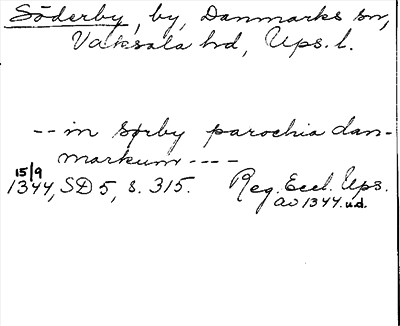 Söderby, by, Danmarks sn,
Vaksala hd, Ups. l.
-- in sørby parochia dan-
markum ----
15/9
1344, SD 5, s. 315. Reg. Eccl. Ups.
av 1344. u.d.